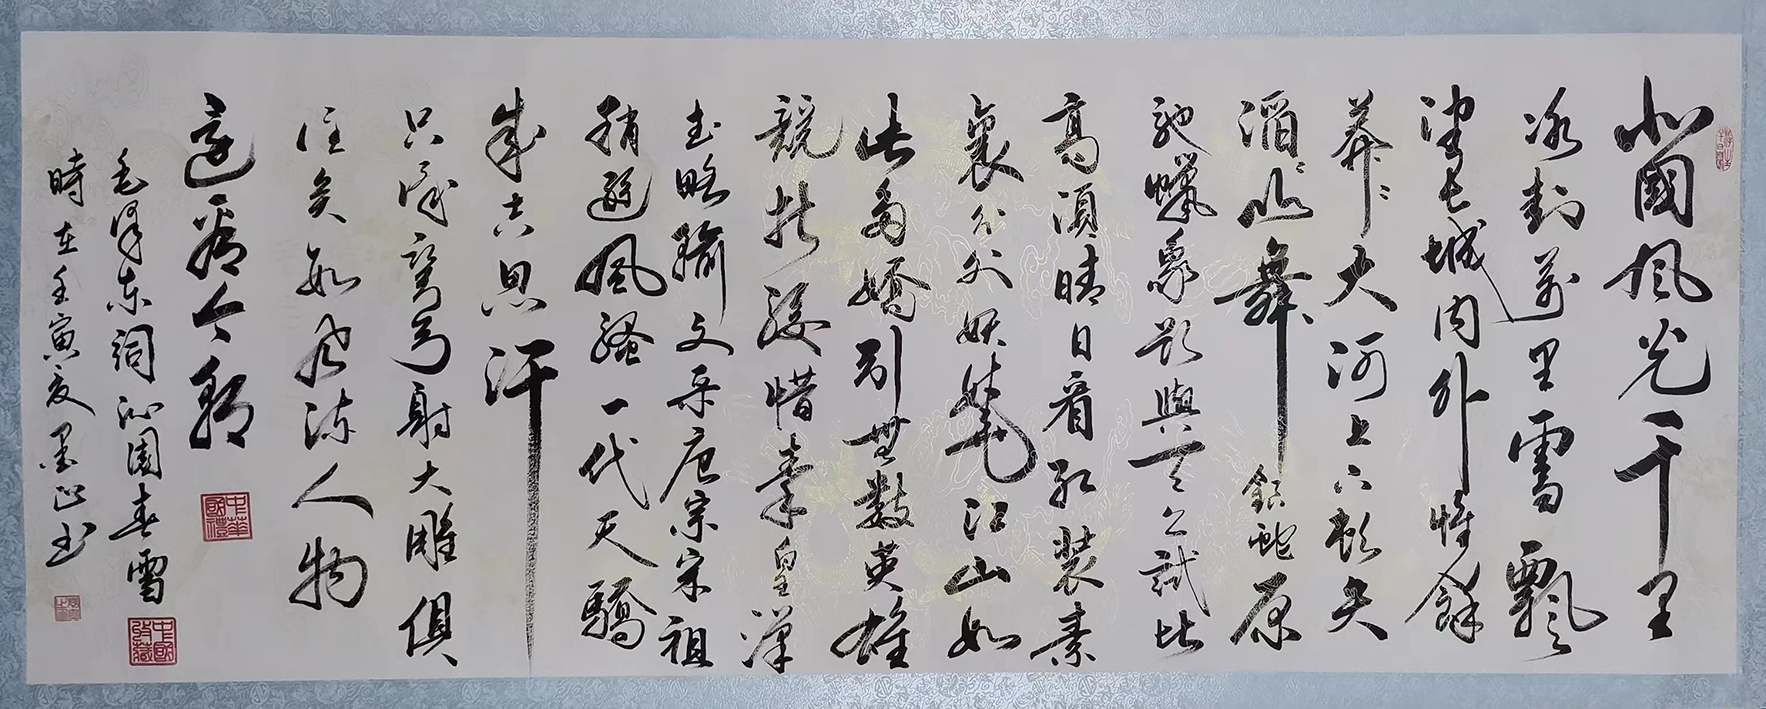 北國風光千里
冰封萬里雪飄
望長城內外惟餘
莽〻大河上下頓失
滔〻山舞銀蛇原
馳蠟象欲與天公試比
高須晴日看紅裝素
裹分外妖嬈江山如
此多嬌引無數英雄
競折腰惜秦皇漢
武略輸文采唐宗宋祖
稍遜風騷一代天驕
成吉思汗
只識彎弓射大雕俱
往矣數風流人物
還看今朝
中華國禮
毛澤東詞沁園春雪
中國收藏
時在壬寅夏墨书